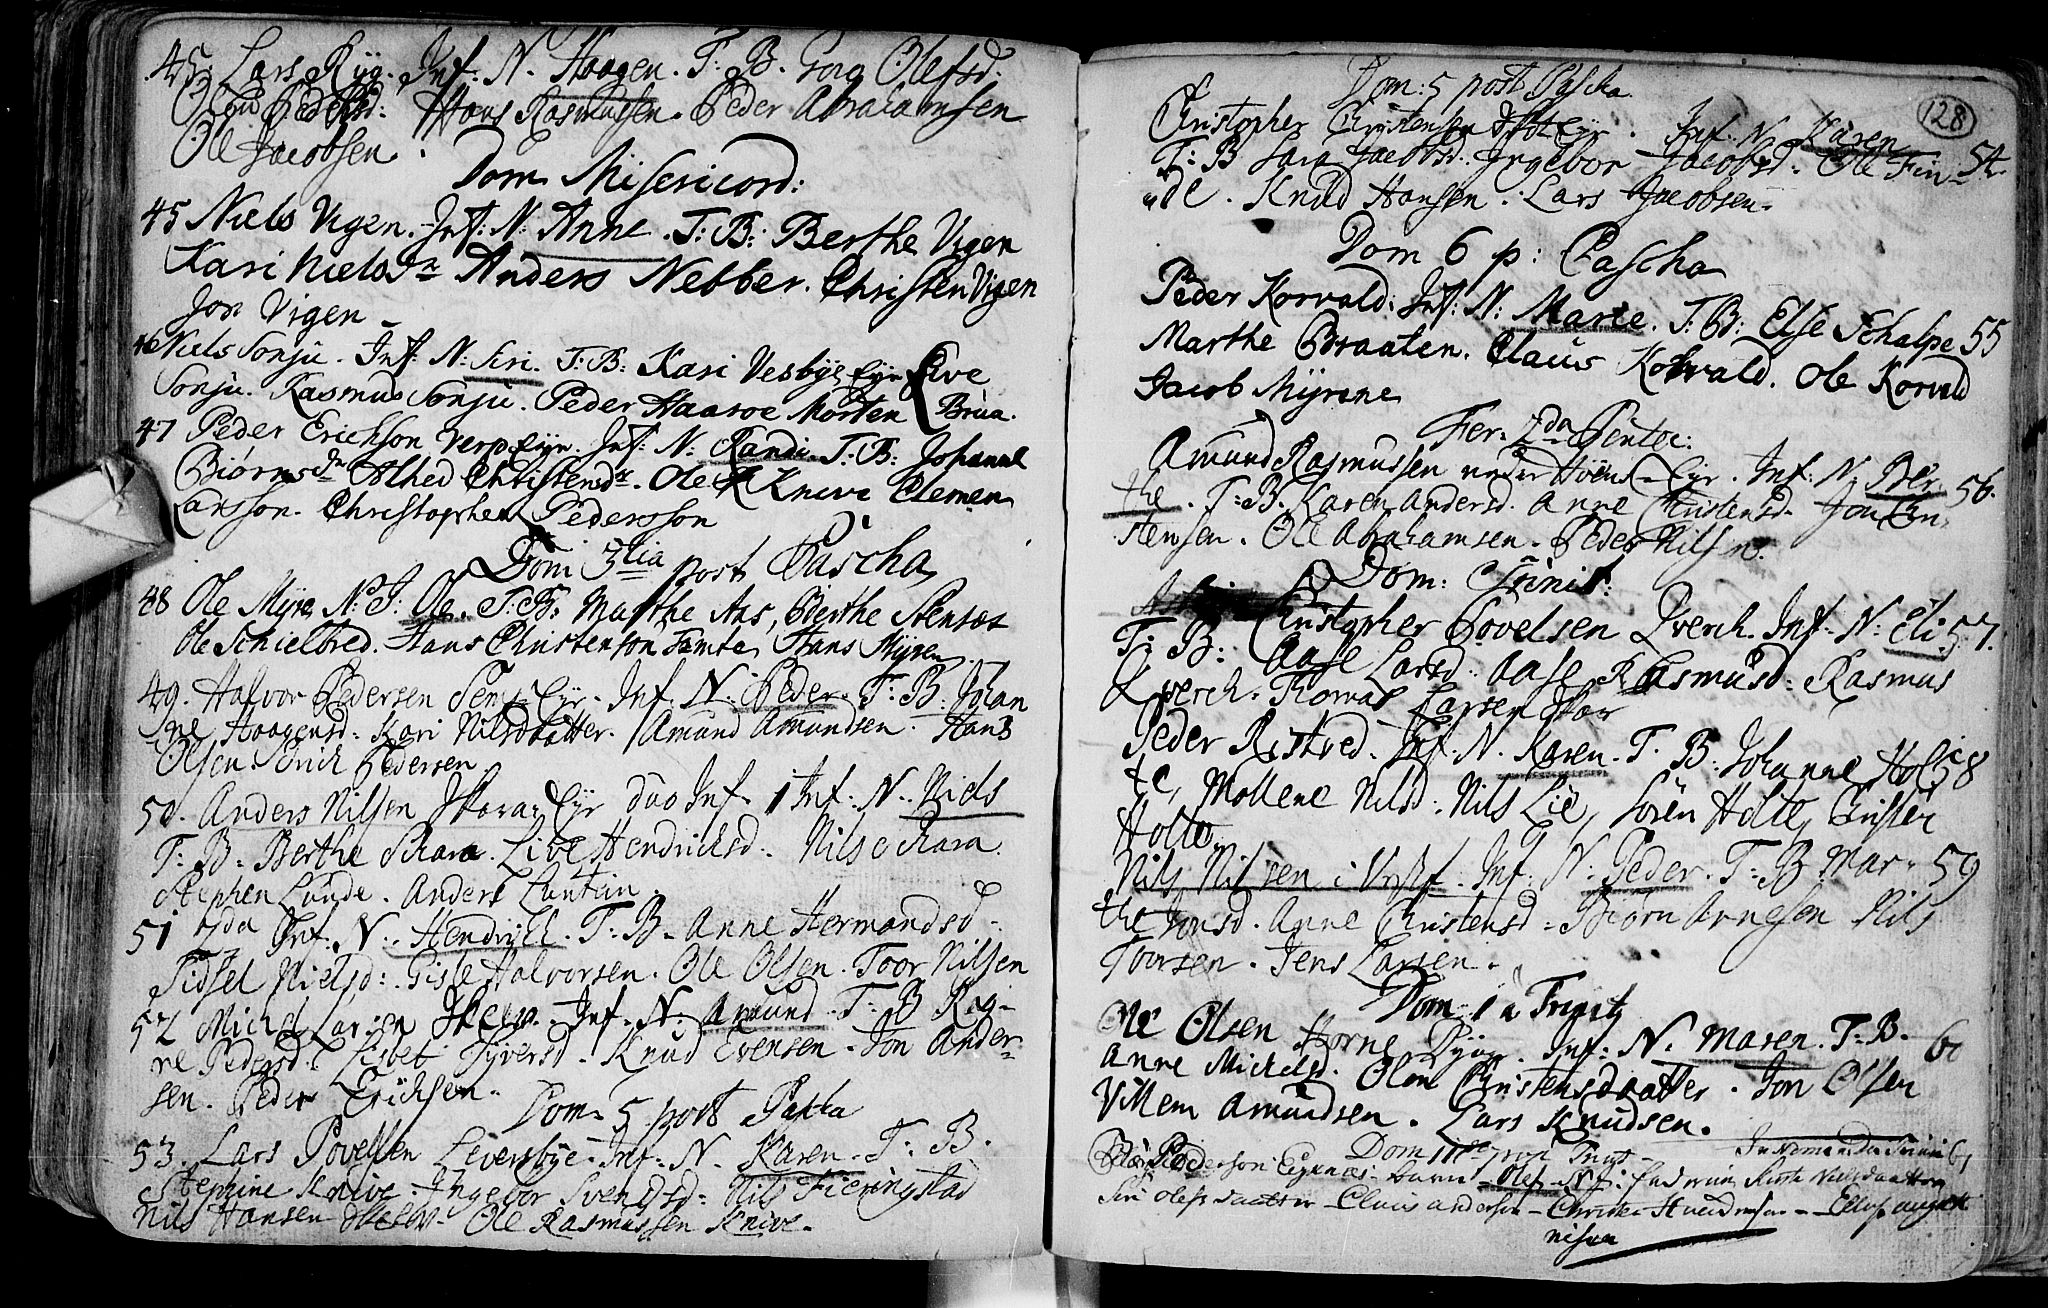 45. Lars Ryg. Inf: N. Haagen. T. B. Goro Olefsd:
Pedersd: Hans Rasmussen. Peder Abrahamsen
Ole Jacobsen.
Dom Misericord:
45 Niels Vigen. Inf: N: Anne. T: B: Berthe Vigen
Kari Nielsdr Anders Nebber. Christen Vigen
Jon Vigen
46 Niels Sonju. Inf: N: Siri. T: B: Kari Vesbye Eyr Live
Sonju. Rasmus Sonju. Peder Haasoe Morten Brua.
47 Peder Erichson Verp Eyr. Inf: N: Randi. T. B: Johanne
Biørnsdr Alhed Christensdr. Ole Knive Clemen
Larsson. Christopher Pedersson
Dom 3tia post Pascha
48 Ole Myre N: I: Ole. T: B: Marthe Aas, Berthe Stensæt
Ole Schielbred. Hans Christenson Tamta, Hans Myren
49. Halvor Pedersen Eyr. Inf. N: Peder. T: B. Johan
ne Haagensd: Kari Nilsdatter. Amund Amundsen. Hans
Olsen. Erich Pedersen
50. Anders Nilsen Skara Eyr duo Inf. 1 Inf: N: Niels
T: B: Berthe Schara. Live Hendrichsd. Nils Schara.
Stephen Lunde. Anders
51 2da Inf. N: Hendrich. T: B. Anne Hermandsd.
Sidsel Nielsd: Gisle Halvorsen. Ole Olsen. Toor Nilsen
52 Michel Larsen Inf. N: Amund. T: B Reg-
ne Pedersd: Lisbet Syversd. Knud Evensen. Jon Ander-
sen. Peder Erichsen.
Dom. 5 post Paska
53. Lars Povelsen Leversbye. Inf. N. Karen. T: B.
Stephine Knive. Ingebor Svendsd: Nils Fieringstad
Nils Hansen Ole Rasmussen Knive.
128
Dom: 5 post Pascha.
Christopher Christensen Eyr. Inf. N. Karen
T: B Sara Jacobsd. Ingebor Jacobsd. Ole Fin- 54.
de. Knud Hansen. Lars Jacobsen.
Dom 6 p: Pascha
Peder Korvald. Inf: N: Marte. T: B: Else Schalpe 55
Marthe Braaten. Claus Korvald. Ole Korvald
Jacob Myrene
Fer. 2da Pentec:
Amund Rasmussen under Eyr. Inf: N. Ber- 56.
the. T: B. Karen Andersd. Anne Christensd. Jon Chri-
stensen. Ole Abrahamsen. Peder Nilsen.
Dom: Trinit:
Christopher Povelsen Qverch. Inf: N: Eli 57.
T: B: Aase Larsd. Aase Rasmusd: Rasmus
Qverch. Larsen
Peder Ristved. Inf: N. Karen. T. B: Johanne Hol- 58
te, Mollene Nilsd: Nils Lie, Sören Holte, Christen
Holte.
Nils Nilsen i Inf. N: Peder. T: B Mar- 59
the Jonsd. Anne Christensd. Biørn Arnesen Nils
Toorsen. Jens Larsen.
Dom. 1 a Trinit
Ole Olsen Horne Inf: N. Maren. T: B. 60
Anne Michelsd. Olea Christensdaatter. Jon Olsen
Villem Amundsen. Lars Knudsen.
Dom post Trinit. 61
Pederson Olef
Siri Olefsdaatter Claus Anderson